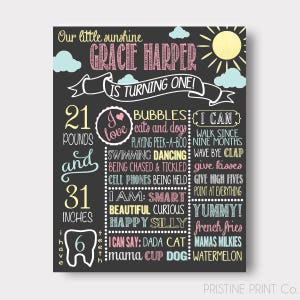 Our little sunshine
GRACIE HARPER
IS TURNING ONE!
21
POUNDS
and
31
INCHES
I have
6
teeth
I love
BUBBLES
cats and dogs
PLAYING PEEK-A-BOO
SWIMMING DANCING
BEING CHASED & TICKLED
CELL PHONES BEING HELD
I AM: SMART
BEAUTIFUL CURIOUS
HAPPY SILLY
I CAN SAY: DADA CAT
mama CUP DOG
I CAN
WALK SINCE
NINE MONTHS
WAVE BYE CLAP
give kisses
GIVE HIGH FIVES
POINT AT EVERYTHING
YUMMY!
french fries
MAMAS MILKIES
WATERMELON
PRISTINE PRINT Co.